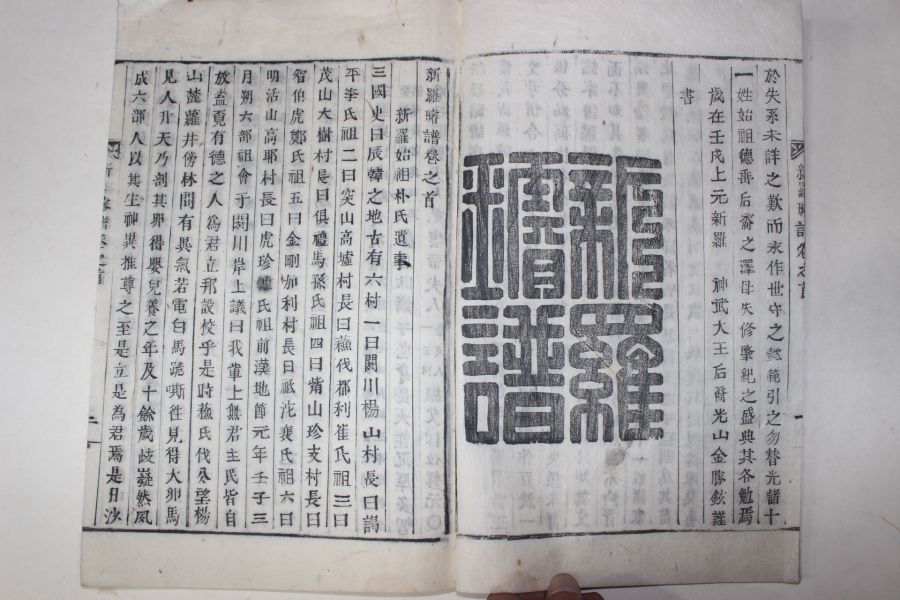 於失系未詳之歎而永作世守之懿範引之勿替光諸十
一姓始祖德垂后裔之澤毋失修肇紀之盛典其各勉焉
歲在壬戌上元新羅 神武大王后裔光山金勝鉉謹
書
新羅
璿譜
新羅璿譜卷之首
新羅始祖朴氏遺事
三國史曰辰韓之地古有六村一曰閼川楊山村長曰謁
平李氏祖二曰突山高墟村長曰蘓伐都利崔氏祖三曰
茂山大樹村長曰俱禮馬孫氏祖四曰觜山珍支村長曰
智伯虎鄭氏祖五曰金剛加利村長曰祗沱裵氏祖六曰
明活山高耶村長曰虎珍薛氏祖前漢地節元年壬子三
月朔六部祖會于閼川岸上議曰我輩上無君主民皆自
放盍覓有德之人爲君立邦設校乎是時蘓氏伐公望楊
山麓蘿井傍林間有異氣若電白馬跪嘶徃見得大卵馬
見人升天乃剖其卵得嬰兒養之年及十餘歲歧嶷然夙
成六部人以其生神異推尊之至是立是為君焉是日沙